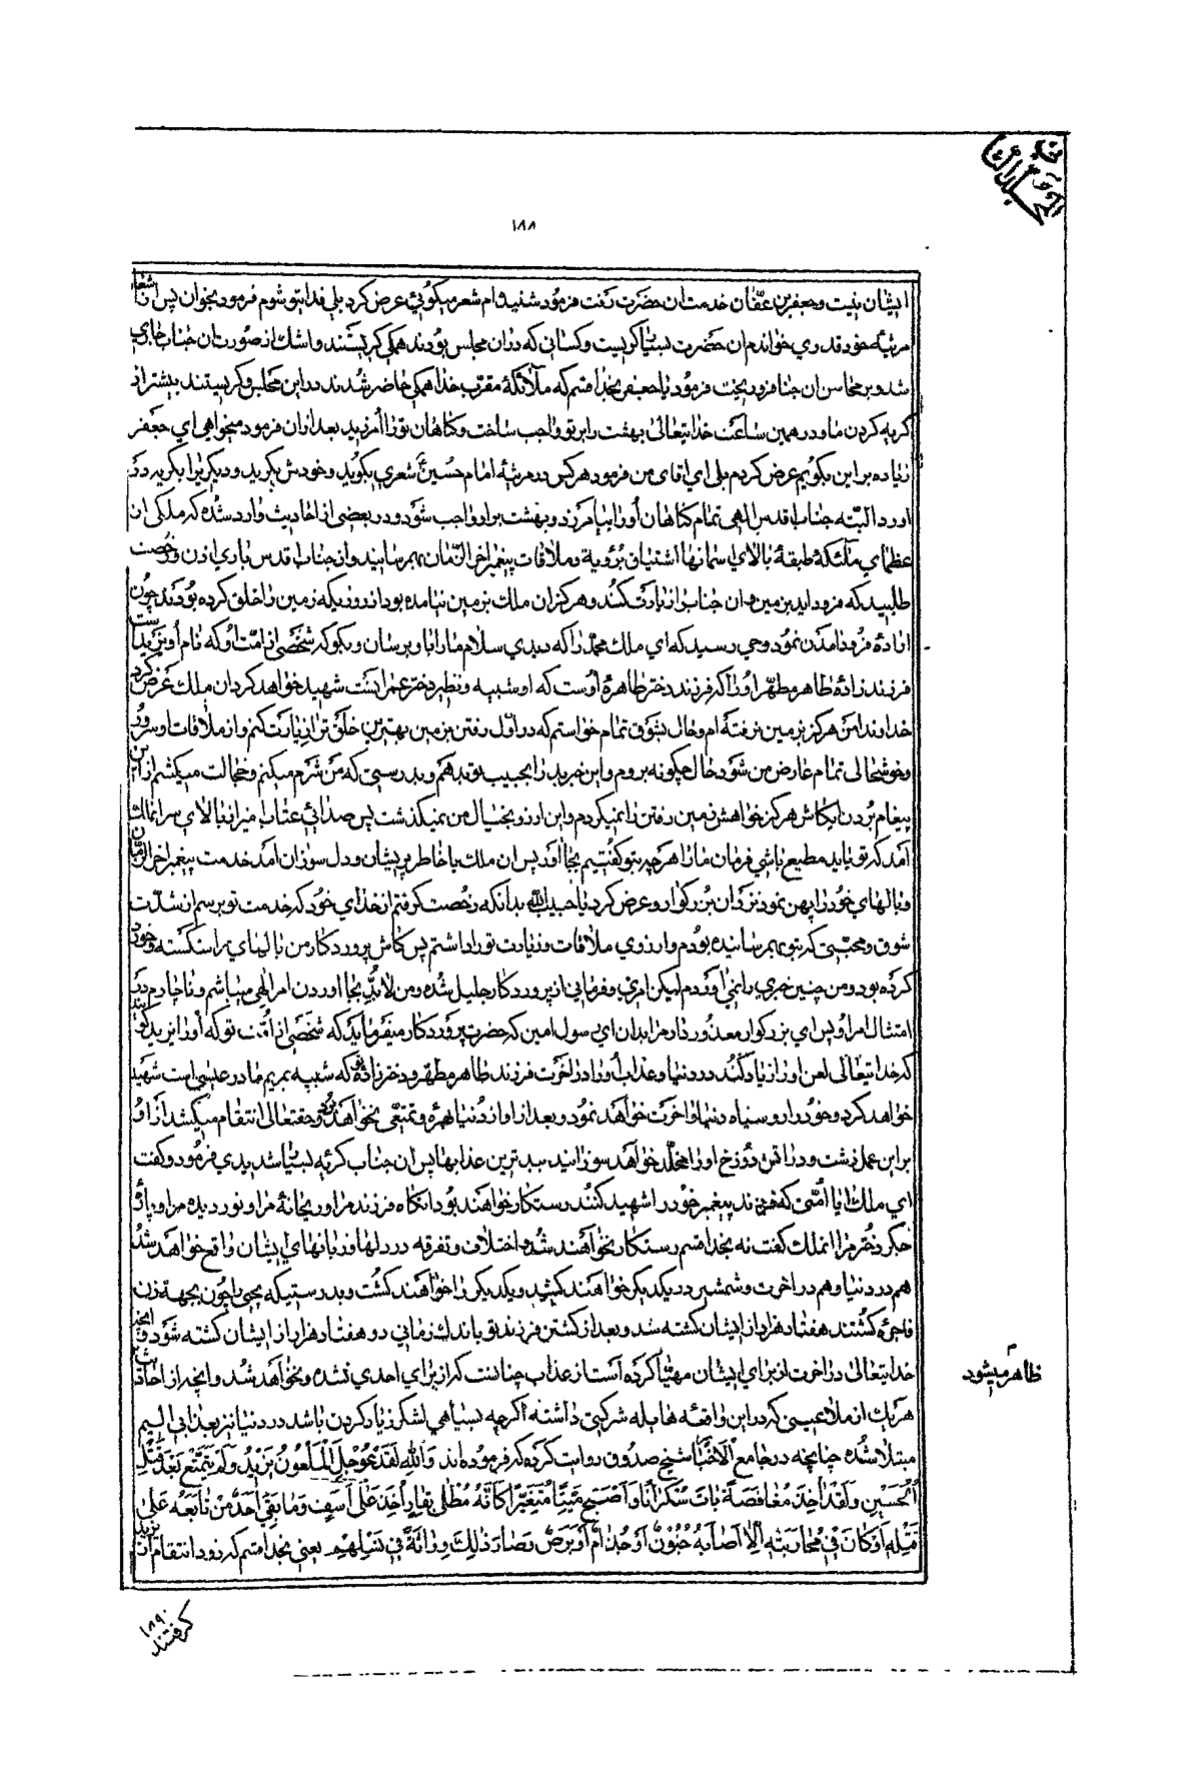 ۱۸۸
ایشان نیت و جعفر بن عفّان خدمت ان حضرت رفت فرمود شنیده ام شعر میکوئی عرض کرد بلی فدایتو شوم فرمود بخوان پس از اشعار
مرثیه خود قدری خواندم ان حضرت بسیار کریست و کسانی که در ان مجلس بودند همکی کریستند و اشک از صورت ان جناب جاری
شد و بر محاسن ان جناب فرو ریخت فرمود یا جعفر بخدا قسم که ملائکه مقرب خدا همکی حاضر شدند در این مجلس و کریستند بیشتر از
کریه کردن ما و در همین ساعت خدایتعالی بهشت را بر تو واجب ساخت و کناهان تو را امرزید بعد از ان فرمود میخواهی ای جعفر
زیاده بر این بکویم عرض کردم بلی ای اقای من فرمود هر کس در مرثیه امام حسین شعری بکوید و خودش بکرید و دیکری را بکریه در
اورد البته جناب اقدس الهی تمام کناهان او را بیامرزد و بهشت بر او واجب شود و در بعضی از احادیث وارد شده که ملکی از
عظمای ملائکه طبقه بالای اسمانها اشتیاق برؤیة و ملاقات پیغمبر اخر الزمان بهم رسانید و از جناب اقدس باری اذن و رخصت
طلبید که فرود اید بزمین و ان جناب را زیارت کند و هرکز ان ملک بزمین نیامده بود از روزیکه زمین را خلق کرده بودند چون
اراده فرود امدن نمود وحی رسید که ای ملک محمد را که دیدی سلام ما را باو برسان و بکو که شخصی از امت او که نام او یزید است
فرزند زاده طاهر مطهر او را که فرزند دختر طاهره اوست که او شبیه و نظیر دختر عمران است شهید خواهد کرد ان ملک عرض کرد
خداوندا من هرکز بزمین نرفته ام و حال بشوق تمام خواستم که در اول رفتن بزمین بهترین خلق ترا زیارت کنم و از ملاقات او سرور
و خوشحالی تمام عارض من شود حال چکونه بروم و این خبر بد را بحبیب تو بدهم و بدرستی که من شرم میکنم و خجالت میکشم از این
پیغام بردن ایکاش هرکز خواهش زمین رفتن را نمیکردم و این ارزو بخیال من نمیکذشت پس صدائی عتاب امیز از بالای سر انملک
آمد که تو باید مطیع باشی فرمان ما را هر چه بتو کفتیم بجا اور پس ان ملک با خاطر پریشان و دل سوزان امد خدمت پیغمبر اخر الزمان
و بالهای خود را پهن نمود نزد ان بزرکوار و عرض کرد یا حبیب الله بدانکه رخصت کرفتم از خدای خود که خدمت تو برسم از شدت
شوق و محبتی که بتو بهم رسانیده بودم و ارزوی ملاقات و زیارت تو را داشتم پس کاش پروردکار من بالهای مرا شکسته و خورد
کرده بود و من چنین خبری را نمی اوردم لیکن امری و فرمانی از پروردکار جلیل شده و من لا بد بجا اوردن امر الهی میباشم و ناچارم در
امتثال امر او پس ای بزرکوار معذور دار مرا بدان ای رسول امین که حضرت پروردکار میفرماید که شخصی از امت تو که او را یزید کویند
که خدایتعالی لعن او را زیاد کند در دنیا و عذاب او را در اخرت فرزند طاهر مطهر و دختر زاده که شبیه بمریم مادر عیسی است شهید
خواهد کرد و خود را رو سیاه دنیا و اخرت خواهد نمود و بعد از او از دنیا بهره و تمتعی نخواهد برد و حقتعالی انتقام میکشد از او
بر این عمل زشت و در اتش دوزخ او را مخلد خواهد سوزانید ببدترین عذابها پس ان جناب کریه بسیار شدیدی فرمود و کفت
ای ملک ایا امتی که فرزند پیغمبر خود را شهید کنند رستکار خواهند بود انکاه فرزند مرا و ریحانه مرا و نور دیده مرا و پاره
جکر دختر مرا انملک کفت نه بخدا قسم رستکار نخواهند شد و اختلاف و تفرقه در دلها و زبانهای ایشان واقع خواهد شد
هم در دنیا و هم در اخرت و شمشیر در یکدیکر خواهند کشید و یکدیکر را خواهند کشت و بدرستیکه یحیی را چون بجهة زن
فاجره کشتند هفتاد هزار از ایشان کشته شد و بعد از کشتن فرزند تو باندک زمانی دو هفتاد هزار از ایشان کشته شود و انچه
خدایتعالی در اخرت از برای ایشان مهیا کرده است از عذاب چنانست که از برای احدی نشده و نخواهد شد و انچه از احادیث
ظاهر میشود
هر یک از ملاعینی که در این واقعه هایله شرکتی داشته اکرچه بسیاهی لشکر زیاد کردن باشد در دنیا نیز بعذابی الیم
مبتلا شده چنانچه در جامع الاخبار شیخ صدوق روایت کرده که فرموده اند وَاللّٰهِ لَقَدْ عُوجِلَ الْمَلْعُونُ يَزِيدُ وَلَمْ يَتَمَتَّعْ بَعْدَ قَتْلِ
الْحُسَيْنِ وَلَقَدْ اُخِذَ مُغَافَصَةً بَاتَ سَكْرَانًا وَاَصْبَحَ مَيِّتًا مُتَغَيِّرًا كَاَنَّهُ مُطْلًى بِقَارٍ اُخِذَ عَلٰى اَسَفٍ وَمَا بَقِيَ اَحَدٌ مِمَّنْ تَابَعَهُ عَلٰى
قَتْلِهِ اَوْ كَانَ فِي مُحَارَبَتِهِ اِلَّا اَصَابَهُ جُنُونٌ اَوْ جُذَامٌ اَوْ بَرَصٌ وَصَارَ ذٰلِكَ وِرَاثَةً فِي نَسْلِهِمْ یعنی بخدا قسم که زود انتقام از یزید
کرفتند